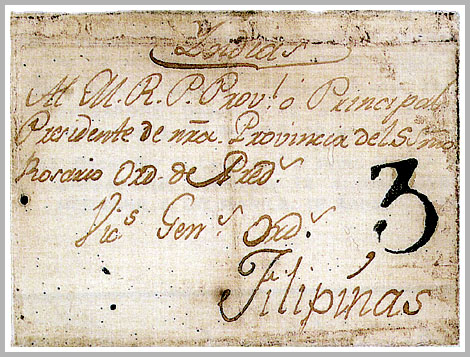 Al M. R. P. Prov.l ó Principal
Presidente de nr̃a. Provincia del SSmo
Rosario Ord. de Pred.s
3
Vic.s Gen.s Ord.s
Filipinas